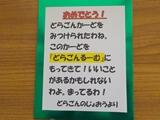 おめでとう！
どらごんかーどを
みつけられたわね、
このかーどを
「どらごんるーむ」に
もってきて！いいこと
があるかもしれない
わよ。まってるわ！
どらごんのじょおうより